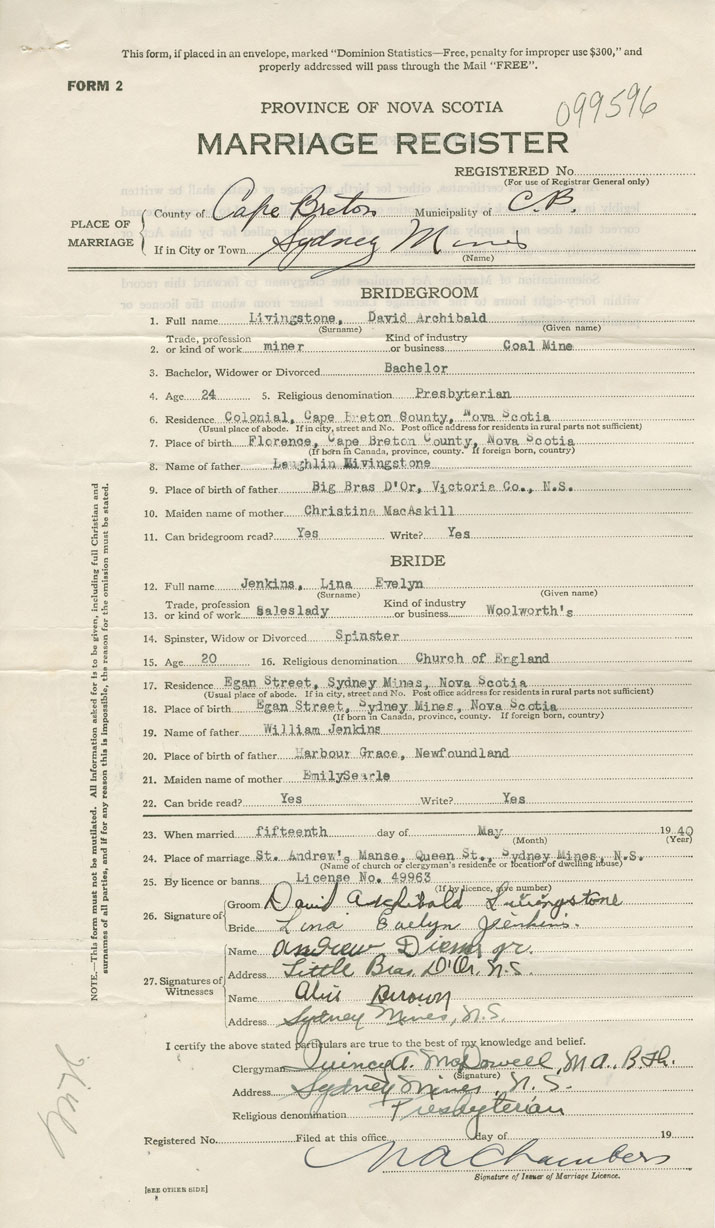 This form, if placed in an envelope, marked "Dominion Statistics—Free, penalty for improper use $300," and
properly addressed will pass through the Mail "FREE".
FORM 2
099596
PROVINCE OF NOVA SCOTIA
MARRIAGE REGISTER
REGISTERED No.
(For use of Registrar General only)
PLACE OF MARRIAGE
County of Cape Breton Municipality of C.B.
If in City or Town Sydney Mines
(Name)
BRIDEGROOM
1. Full name Livingstone, David Archibald
(Surname) (Given name)
2. Trade, profession or kind of work miner Kind of industry or business Coal Mine
3. Bachelor, Widower or Divorced Bachelor
4. Age 24 5. Religious denomination Presbyterian
6. Residence Colonial, Cape Breton County, Nova Scotia
(Usual place of abode. If in city, street and No. Post office address for residents in rural parts not sufficient)
7. Place of birth Florence, Cape Breton County, Nova Scotia
(If born in Canada, province, county. If foreign born, country)
8. Name of father Laughlin Mivingstone
9. Place of birth of father Big Bras D'Or, Victoria Co., N.S.
10. Maiden name of mother Christina MacAskill
11. Can bridegroom read? Yes Write? Yes
BRIDE
12. Full name Jenkins, Lina Evelyn
(Surname) (Given name)
13. Trade, profession or kind of work Saleslady Kind of industry or business Woolworth's
14. Spinster, Widow or Divorced Spinster
15. Age 20 16. Religious denomination Church of England
17. Residence Egan Street, Sydney Mines, Nova Scotia
(Usual place of abode. If in city, street and No. Post office address for residents in rural parts not sufficient)
18. Place of birth Egan Street, Sydney Mines, Nova Scotia
(If born in Canada, province, county. If foreign born, country)
19. Name of father William Jenkins
20. Place of birth of father Harbour Grace, Newfoundland
21. Maiden name of mother EmilySearle
22. Can bride read? Yes Write? Yes
23. When married fifteenth day of May 1940
(Month) (Year)
24. Place of marriage St. Andrew's Manse, Queen St., Sydney Mines, N.S.
(Name of church or clergyman's residence or location of dwelling house)
25. By licence or banns License No. 49963
(If by licence, give number)
26. Signature of Groom David Archibald Livingstone
Bride Lina Evelyn Jenkins.
27. Signatures of Witnesses
Name Andrew Diem jr.
Address Little Bras D'Or, N.S.
Name Alice Brown
Address Sydney Mines, N.S.
I certify the above stated particulars are true to the best of my knowledge and belief.
Clergyman Quincy A. McDowell, M.A., B.Th.
(Signature)
Address Sydney Mines, N.S.
Religious denomination Presbyterian
Registered No. Filed at this office day of 19
Chambers
Signature of Issuer of Marriage Licence.
[SEE OTHER SIDE]
8
NOTE.—This form must not be mutilated. All Information asked for is to be given, including full Christian and
surnames of all parties, and if for any reason this is impossible, the reason for the omission must be stated.